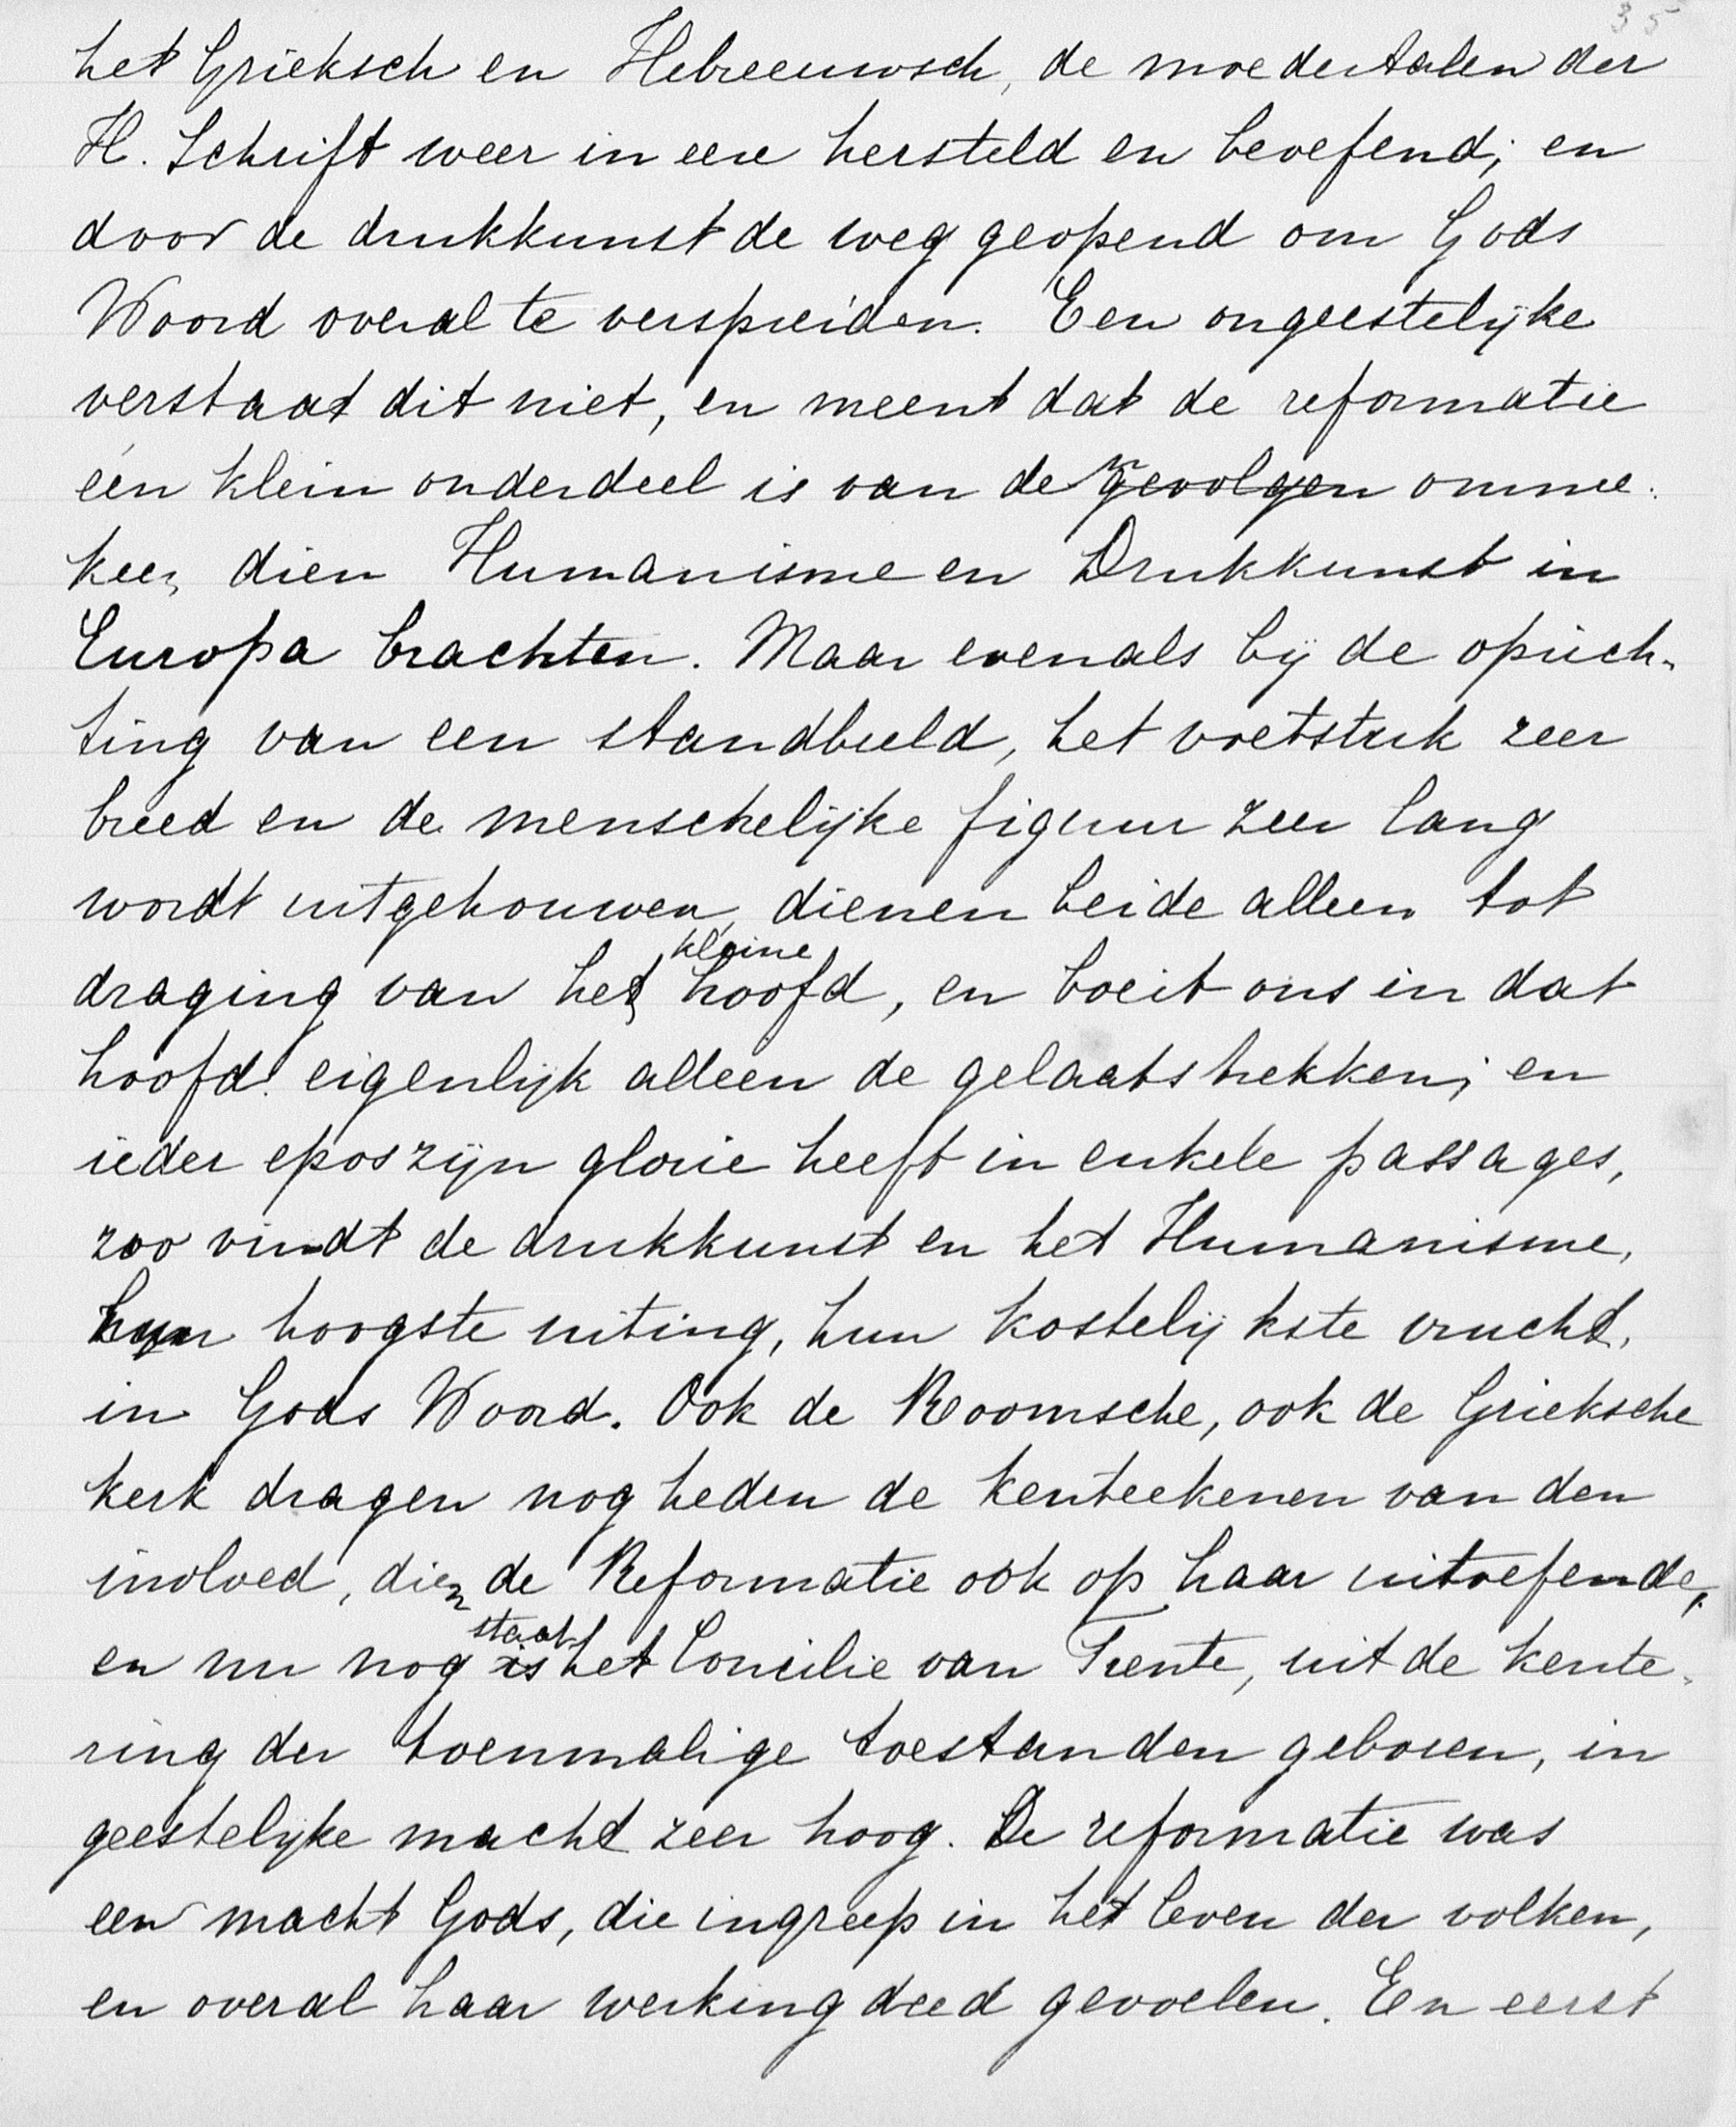 35
het Grieksch en Hebreeuwsch, de moedertalen der
H. Schrift weer in eere hersteld en beoefend; en
door de drukkunst de weg geopend om Gods
Woord overal te verspreiden. Een ongeestelijke
verstaat dit niet, en meent dat de reformatie
één klein onderdeel is van den gevolgen omme-
keer, dien Humanisme en Drukkunst in
Europa brachten. Maar evenals bij de oprich-
ting van een standbeeld, het voetstuk zeer
breed en de menschelijke figuur zeer lang
wordt uitgehouwen, dienen beide alleen tot
kleine
draging van het hoofd, en boeit ons in dat
hoofd eigenlijk alleen de gelaatstrekken; en
ieder epos zijn glorie heeft in enkele passages,
zoo vindt de drukkunst en het Humanisme,
hun hoogste uiting, hun kostelijkste vrucht,
in Gods Woord. Ook de Roomsche, ook de Grieksche
kerk dragen nog heden de kenteekenen van den
invloed, dien de Reformatie ook op haar uitoefende,
staat
en nu nog is het Concilie van Trente, uit de kente-
ring der toenmalige toestanden geboren, in
geestelijke macht zeer hoog. De reformatie was
een macht Gods, die ingreep in het leven der volken,
en overal haar werking deed gevoelen. En eerst